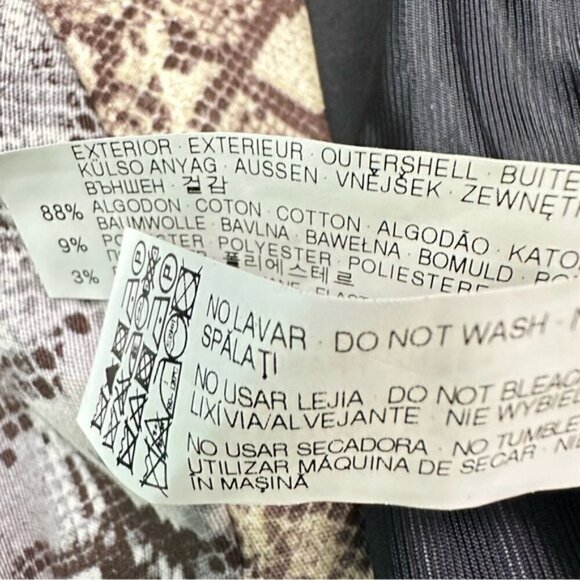 EXTERIOR · EXTERIEUR · OUTERSHELL · BUITE
KÜLSO ANYAG · AUSSEN · VNĚJŠEK · ZEWNĘT
ВЪНШЕН · 겉감
88% ALGODON · COTON · COTTON · ALGODÃO · KATO
BAUMWOLLE · BAVLNA · BAWEŁNA · BOMULD ·
9% POLYESTER · POLIESTERE
3% 폴리에스테르
NO LAVAR · DO NOT WASH ·
SPĂLAȚI
NO USAR LEJIA · DO NOT BLEAC
LIXÍVIA/ALVEJANTE · NIE WYBIE
NO USAR SECADORA · NO TUMBLE
UTILIZAR MÁQUINA DE SECAR · NI
ÎN MAȘINĂ